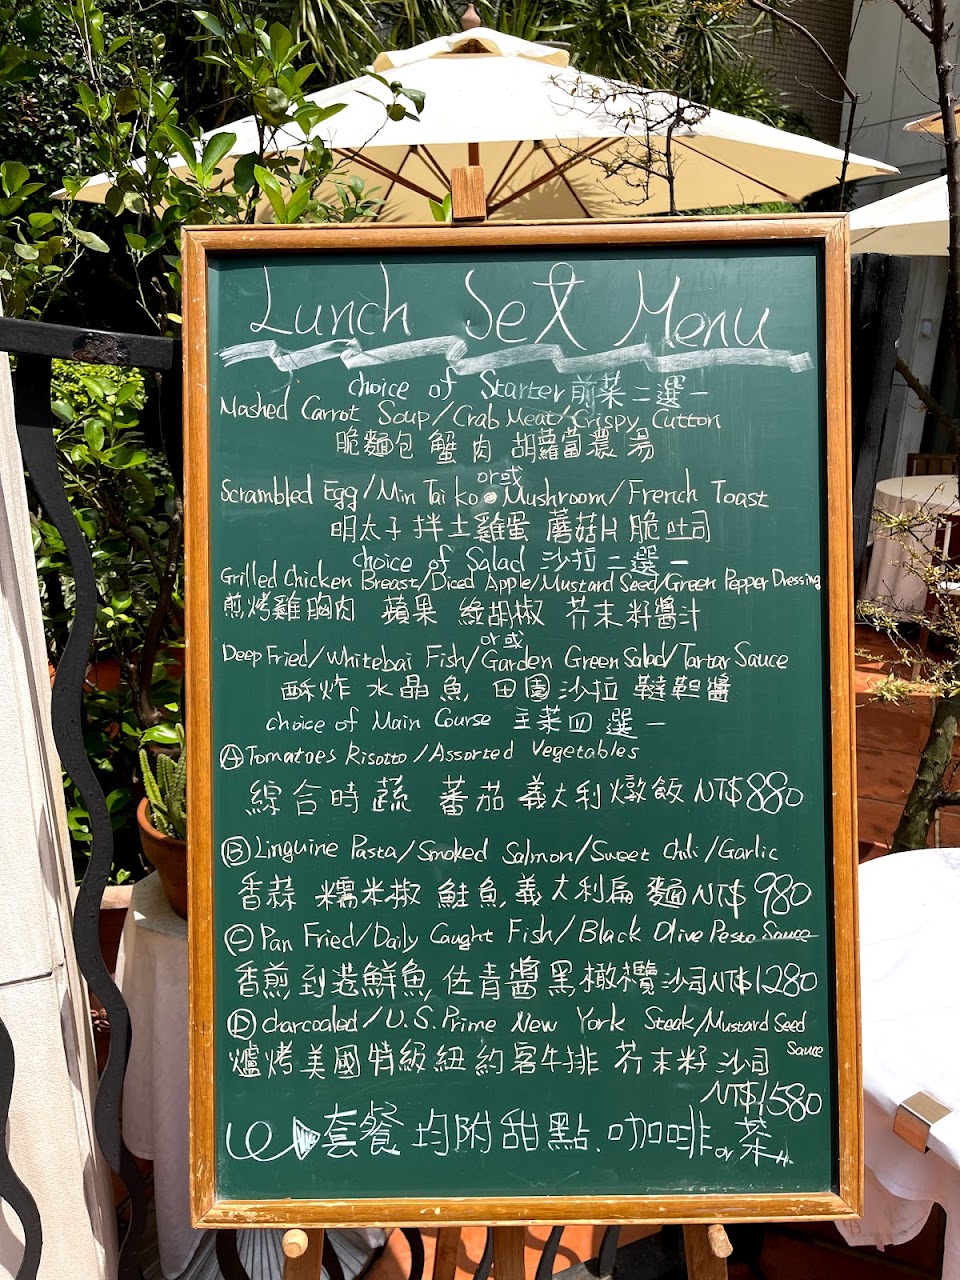 Lunch Set Menu
choice of Starter 前菜二選一
Mashed Carrot Soup/Crab Meat/Crispy Cutton
脆麵包 蟹肉 胡蘿蔔濃湯
or或
Scrambled Egg/Min Tai ko Mushroom/French Toast
明太子拌土雞蛋 蘑菇片脆吐司
choice of Salad 沙拉二選一
Grilled Chicken Breast/Diced Apple/Mustard Seed/Green Pepper Dressing
煎烤雞胸肉 蘋果 綠胡椒 芥末籽醬汁
or或
Deep Fried/Whitebai Fish/Garden Green Salad/Tartar Sauce
酥炸水晶魚 田園沙拉 韃靼醬
choice of Main Course 主菜四選一
Ⓐ Tomatoes Risotto/Assorted Vegetables
綜合時蔬 蕃茄義大利燉飯 NT$880
Ⓑ Linguine Pasta/Smoked Salmon/Sweet Chili/Garlic
香蒜 糯米椒 鮭魚義大利扁麵 NT$980
Ⓒ Pan Fried/Daily Caught Fish/Black Olive Pesto Sauce
香煎到港鮮魚, 佐青醬黑橄欖沙司 NT$1280
Ⓓ charcoaled/U.S.Prime New York Steak/Mustard Seed Sauce
爐烤美國特級紐約客牛排 芥末籽沙司
NT$1580
套餐均附甜點.咖啡or茶